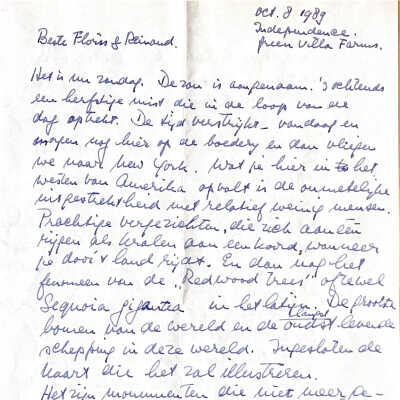 Oct. 8 1989
Independence.
green Villa Farms.
Beste Floris & Reinoud.
Het is nu zondag. De zon is aangenaam. 's ochtends
een herfstige mist die in de loop van de
dag optrekt. De tijd verstrijkt - vandaag en
morgen nog hier op de boederij en dan vliegen
we naar New York. Wat je hier in to het
westen van Amerika opvalt is de onmetelijke
uitgestrektheid met relatief weinig mensen.
Prachtige vergezichten, die zich aan één
rijgen als kralen aan een koord, wanneer
je door 't land rijdt. En dan nog het
fenomeen van de "Redwood Trees" oftewel
Sequoia gigantea in het latijn. De grootste
bomen van de wereld en de langst levende
schepping in deze wereld. Ingesloten de
kaart die het zal illustreren.
Het zijn monumenten die niet meer ge-